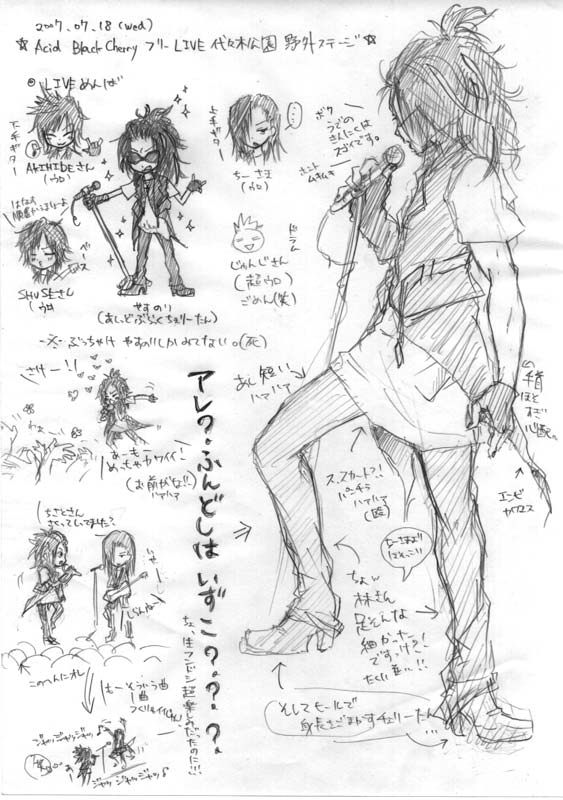 2007.07.18 (wed)
☆ Acid Black Cherry フリーLIVE 代々木公園 野外ステージ ☆
◎ LIVE めんば
下手ギター
AKIHIDEさん
(ウロ)
上手ギター
…
ちーさま
(ウロ)
ベース
SHUSEさん
(ウロ)
ドラム
じゅんじさん
(超ウロ)
ごめん(笑)
やすのり
(あしっどぶらっくちぇりーたん)
-※- ぶっちゃけ やすのりしかみてない。(死)
ボク
うでの
きんにくは
スゴイです。
ホント
ムキムキ
さけー!!
わぁ〜
あーもー
めっちゃカワイイ!
(お前がな!!)
ハァハァ
あし短い
ハァハァ
アレ?ふんどしはいずこ?。?。?
ちょ、生フンドシ超楽しみだったのに!!!
ス、スカート?!
パンチラ
ハァハァ
(殴)
エンビ
ちょw
林さん
足そんな
細かった
ですっけ?!
そしてヒールで
身長をごまかすチェリーたん
ちさとさん
さわっていてました?
このへんにオレ
もーそういう曲
1曲
ジャッジャッジャッ♪
ジャッジャッジャッ♪